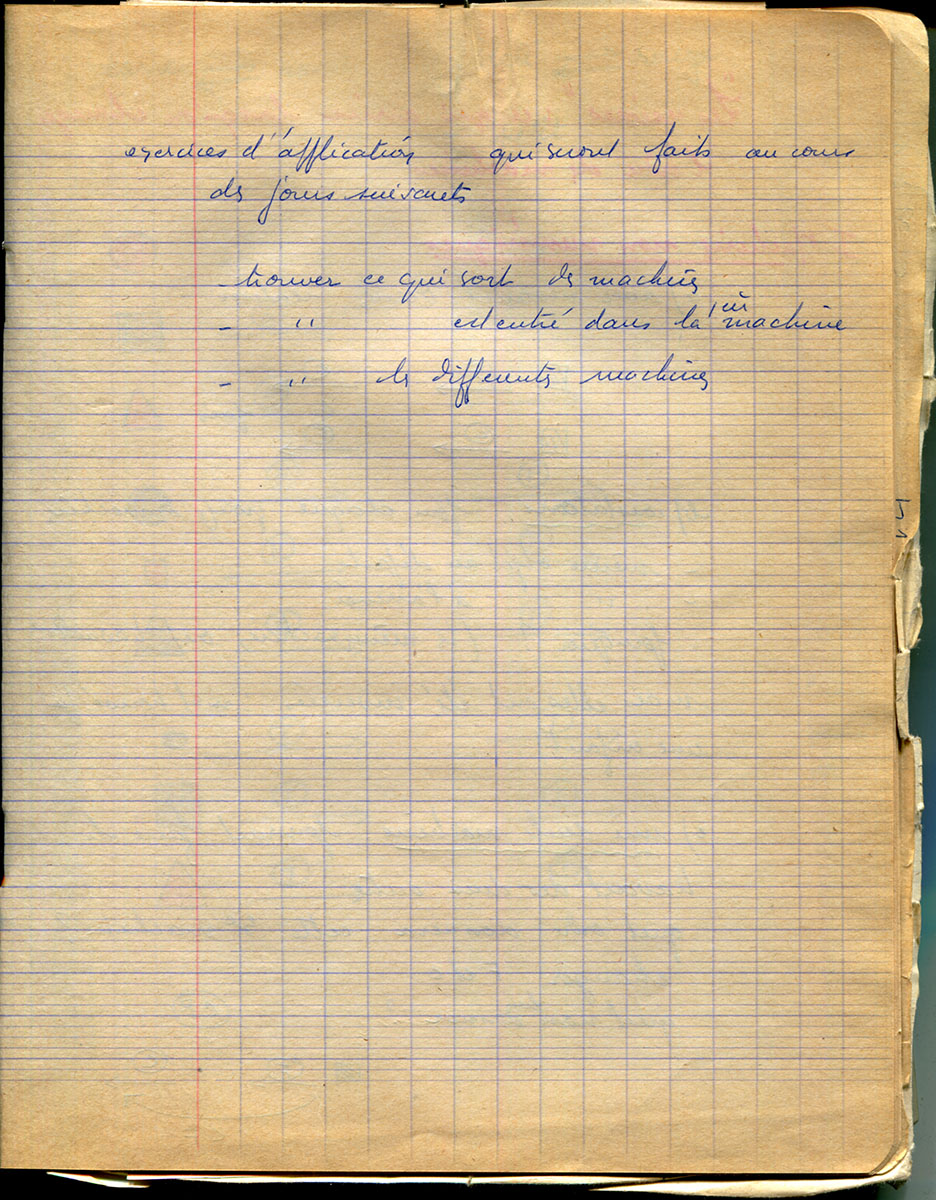 exercices d'application qui seront faits au cours
des jours suivants
- trouver ce qui sort des machines
- " est entré dans la machine
- " les différents machines